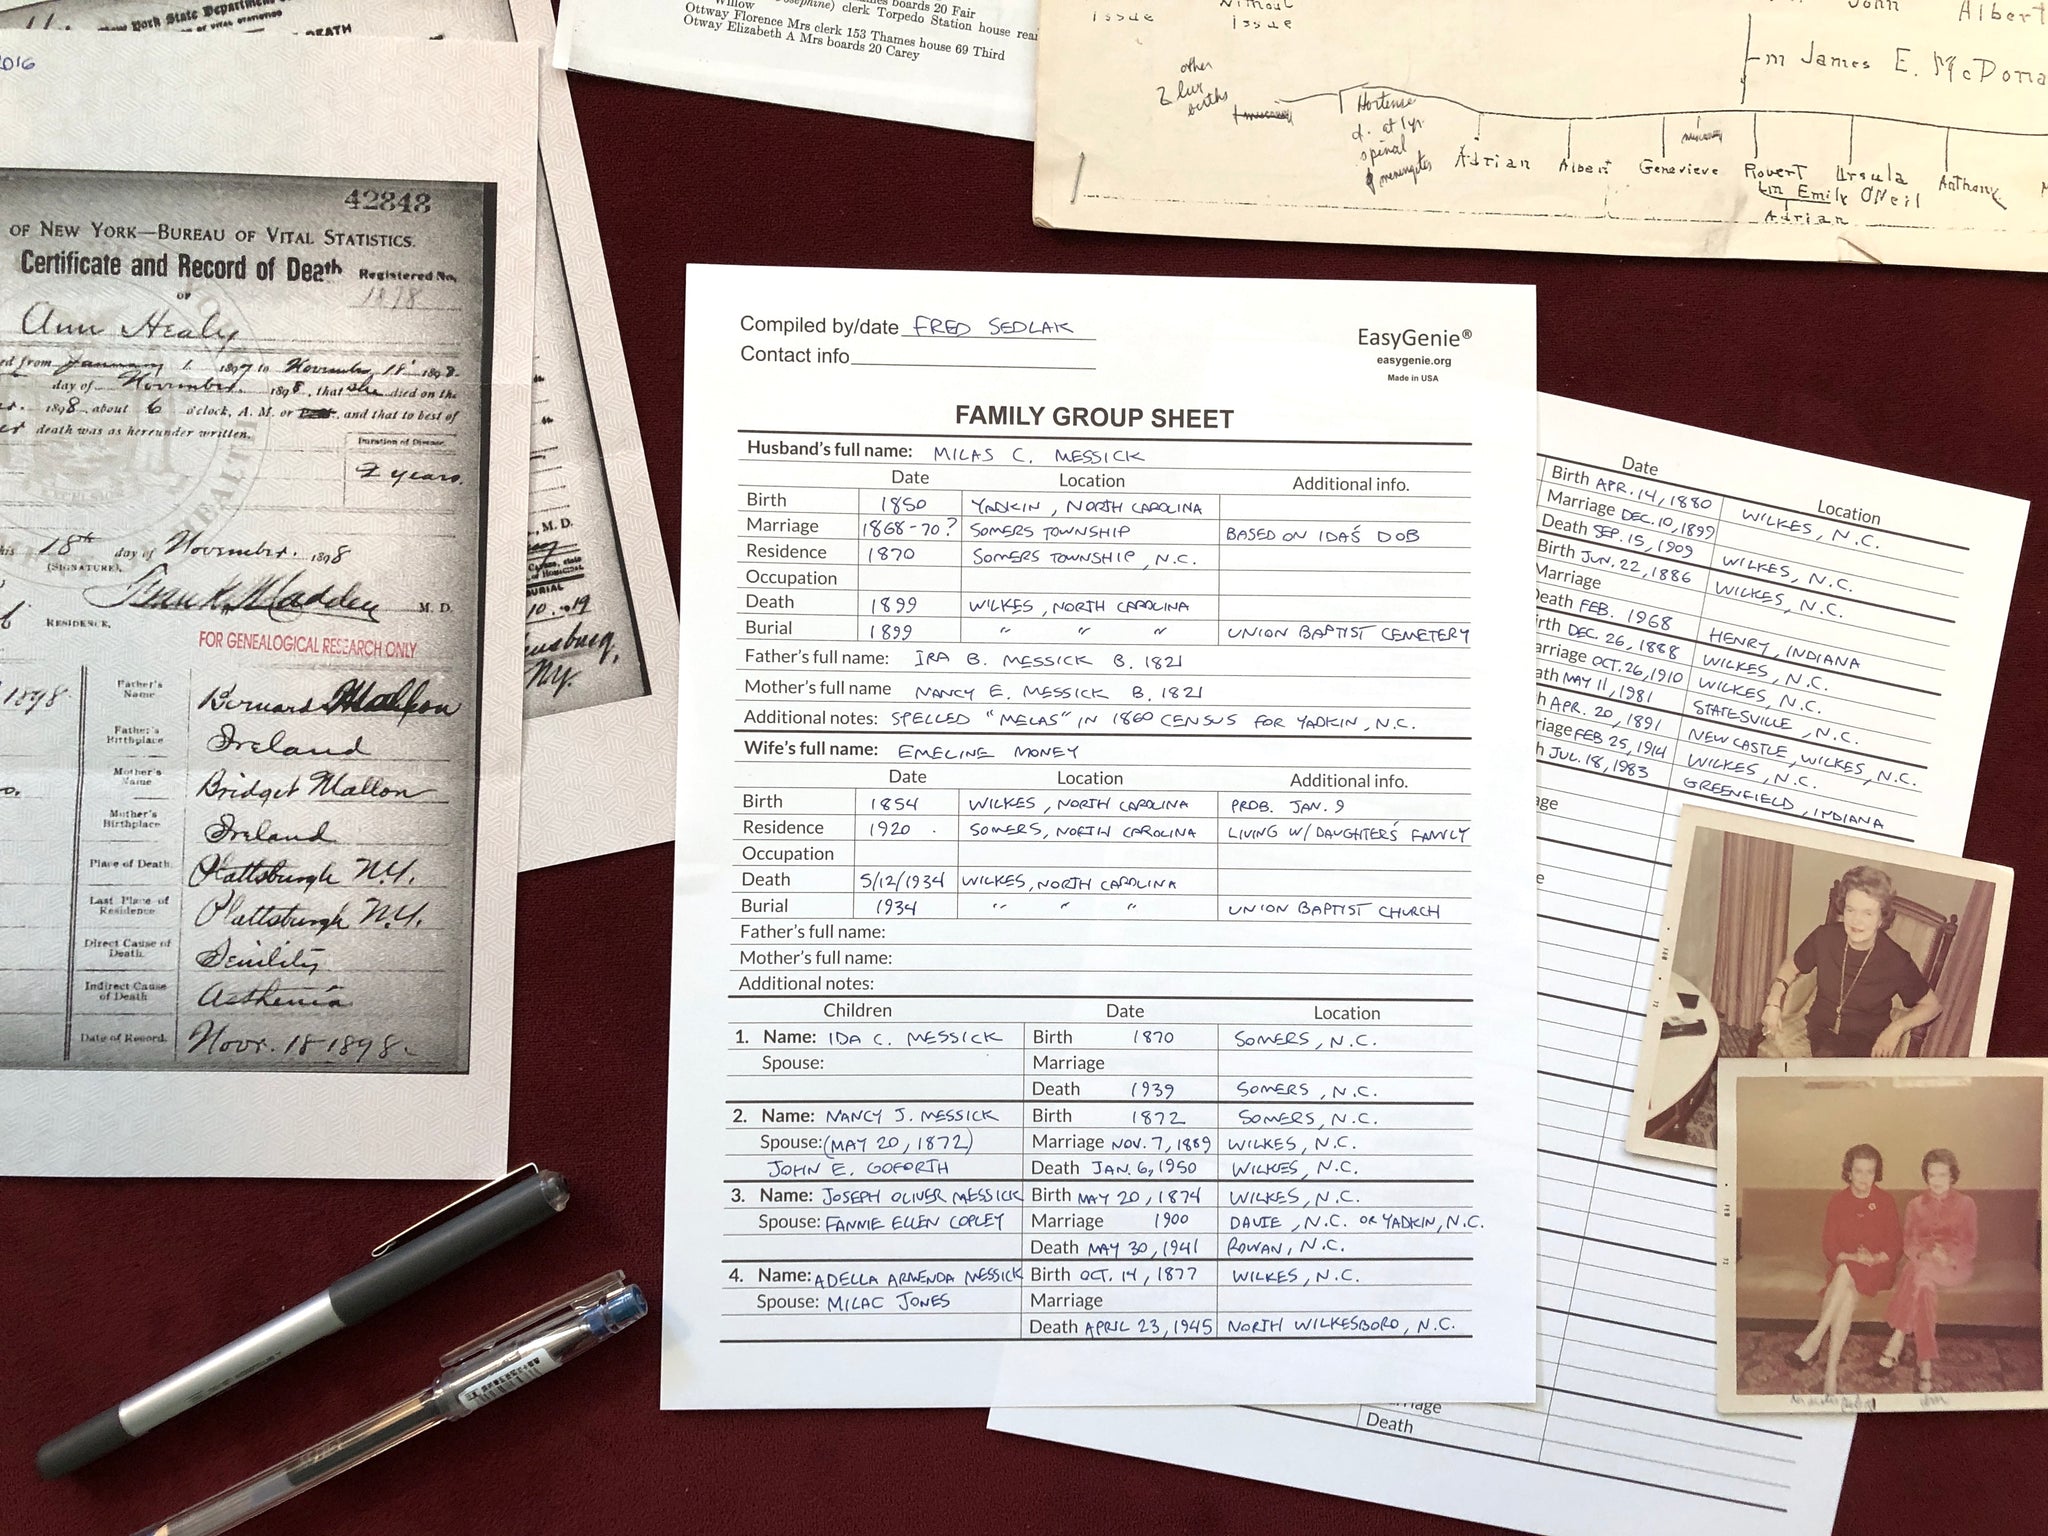 2016
42848
OF NEW YORK—BUREAU OF VITAL STATISTICS.
Certificate and Record of Death
Registered No.
OF
1898
Ann Healy
ed from January 1 1897 to November 18 1898
day of November 1898, that she died on the
1898, about 6 o'clock, A. M. or and that to best of
death was as hereunder written.
Duration of Disease.
2 years.
18th day of November. 1898
(SIGNATURE),
Frank Madden M. D.
RESIDENCE,
FOR GENEALOGICAL RESEARCH ONLY
1898
Father's Name
Bernard Mallon
Father's Birthplace
Ireland
Mother's Name
Bridget Mallon
Mother's Birthplace
Ireland
Place of Death.
Plattsburgh N.Y.
Last Place of Residence
Plattsburgh N.Y.
Direct Cause of Death.
Senility
Indirect Cause of Death
Asthenia
Date of Record.
Novr. 18 1898.
York State Department
OF VITAL STATISTICS
DEATH
, M. D.
BURIAL
10. 19
NY.
boards 20 Fair
Willow
Josephine) clerk Torpedo Station house rear
Ottway Florence Mrs clerk 153 Thames house 69 Third
Otway Elizabeth A Mrs boards 20 Carey
issue
without issue
John
Albert
m James E. McDona
other
2 live
births
Hortense
d. at 1 yr.
spinal
meningites
Adrian
Albert
Genevieve
Robert
m Emily O'Neil
Adrian
Ursula
Anthony
Compiled by/date FRED SEDLAK
Contact info
EasyGenie®
easygenie.org
Made in USA
FAMILY GROUP SHEET
Husband's full name: MILAS C. MESSICK
Date Location Additional info.
Birth 1850 YADKIN, NORTH CAROLINA
Marriage 1868-70? SOMERS TOWNSHIP BASED ON IDA'S DOB
Residence 1870 SOMERS TOWNSHIP, N.C.
Occupation
Death 1899 WILKES, NORTH CAROLINA
Burial 1899 " " " UNION BAPTIST CEMETERY
Father's full name: IRA B. MESSICK B. 1821
Mother's full name NANCY E. MESSICK B. 1821
Additional notes: SPELLED "MELAS" IN 1860 CENSUS FOR YADKIN, N.C.
Wife's full name: EMELINE MONEY
Date Location Additional info.
Birth 1854 WILKES, NORTH CAROLINA PROB. JAN. 9
Residence 1920 SOMERS, NORTH CAROLINA LIVING W/ DAUGHTER'S FAMILY
Occupation
Death 5/12/1934 WILKES, NORTH CAROLINA
Burial 1934 " " " UNION BAPTIST CHURCH
Father's full name:
Mother's full name:
Additional notes:
Children Date Location
1. Name: IDA C. MESSICK Birth 1870 SOMERS, N.C.
Spouse: Marriage
Death 1939 SOMERS, N.C.
2. Name: NANCY J. MESSICK Birth 1872 SOMERS, N.C.
Spouse: (MAY 20, 1872) Marriage NOV. 7, 1889 WILKES, N.C.
JOHN E. GOFORTH Death JAN. 6, 1950 WILKES, N.C.
3. Name: JOSEPH OLIVER MESSICK Birth MAY 20, 1874 WILKES, N.C.
Spouse: FANNIE ELLEN COPLEY Marriage 1900 DAVIE, N.C. OR YADKIN, N.C.
Death MAY 30, 1941 ROWAN, N.C.
4. Name: ADELLA ARMENDA MESSICK Birth OCT. 14, 1877 WILKES, N.C.
Spouse: MILAC JONES Marriage
Death APRIL 23, 1945 NORTH WILKESBORO, N.C.
Date Location
Birth APR. 14, 1880 WILKES, N.C.
Marriage DEC. 10, 1899
Death SEP. 15, 1909 WILKES, N.C.
Birth JUN. 22, 1886 WILKES, N.C.
Marriage
Death FEB. 1968 HENRY, INDIANA
irth DEC. 26, 1888 WILKES, N.C.
arriage OCT. 26, 1910 WILKES, N.C.
ath MAY 11, 1981 STATESVILLE, N.C.
h APR. 20, 1891 NEWCASTLE, WILKES, N.C.
riage FEB 25, 1914 WILKES, N.C.
h JUL. 18, 1983 GREENFIELD, INDIANA
age
e
rriage
Death
FEB 72
FEB 72